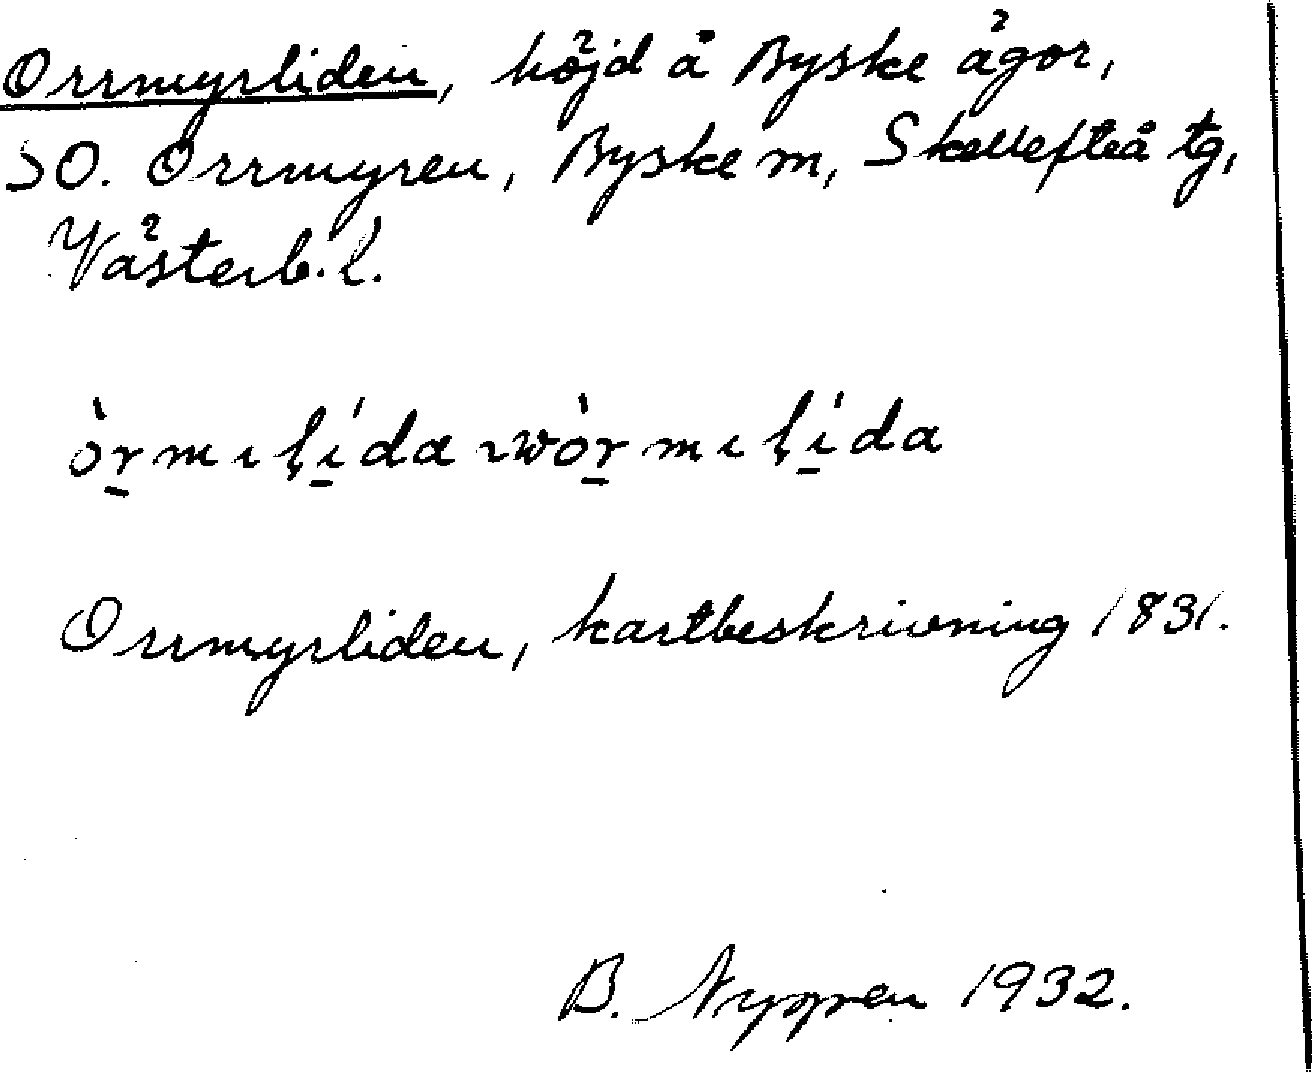 Orrmyrliden, höjd å Byske ägor,
SO. Orrmyren, Byske m, Skellefteå tg,
Västerb. l.
òr̠mıḷí̠da ~ wòr̠mıḷí̠da
Orrmyrliden, kartbeskrivning 1831.
B. 1932.